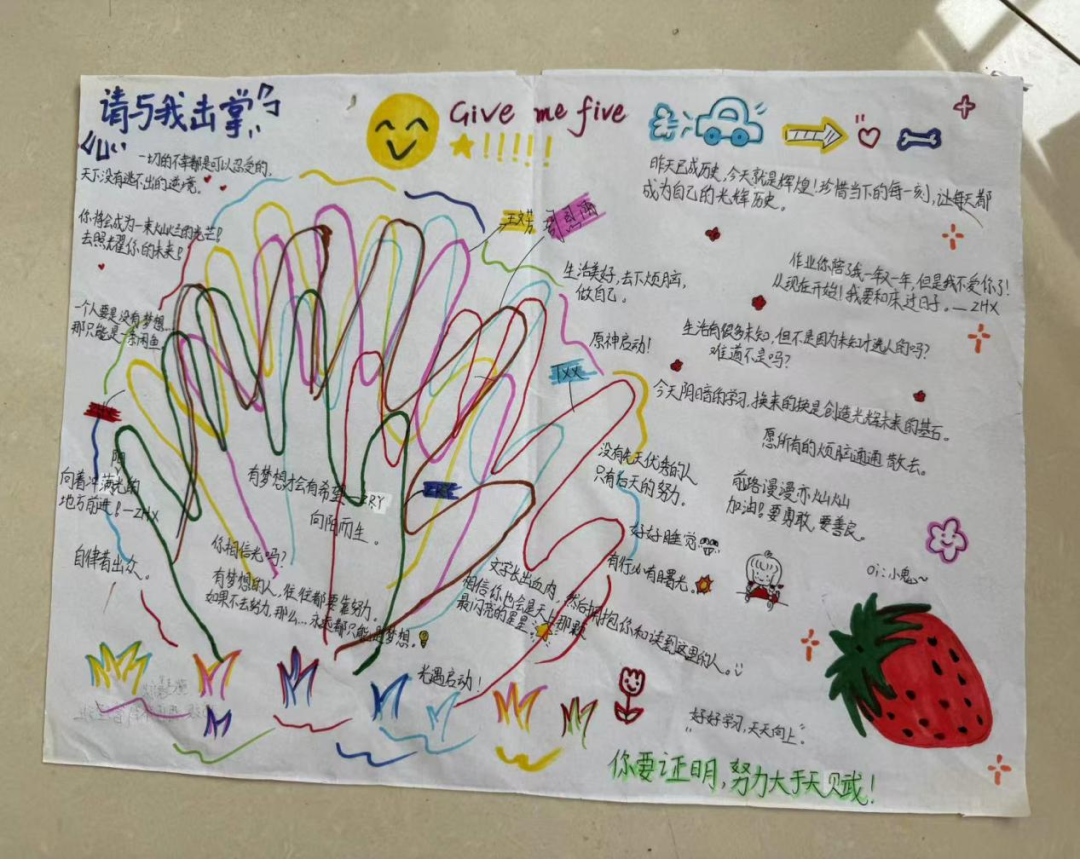 请与我击掌
Give me five
!!!!!
一切的不幸都是可以忍受的,
天下没有逃不出的逆境。
你将会成为一束灿烂的光芒!
去照耀你的未来!
一个人要是没有梦想...
那只能是一条闲鱼
向着洒满阳光的
地方前进!—ZHX
自律者出众。
有梦想才会有希望
ZRY
向阳而生。
你相信光吗?
有梦想的人,往往都要靠努力,
如果不去努力,那么...永远都只能是梦想。
光遇启动!
昨天已成历史,今天就是辉煌!珍惜当下的每一刻,让每天都
成为自己的光辉历史。
作业你陪了我一年又一年,但是我不爱你了!
从现在开始!我要和床过日子。—ZHX
生活美好,去下烦脑,
做自己。
原神启动!
生活有很多未知,但不是因为未知才迷人的吗?
难道不是吗?
今天阴暗的学习,换来的换是创造光辉未来的基石。
愿所有的烦脑通通散去。
TXX
没有先天优秀的人
只有后天的努力。
前路漫漫亦灿灿
加油!要勇敢,要善良。
好好睡觉
有行必有曙光。
oi:小鬼~
文字长出血肉,然后拥抱你和读到这里的人。
相信你也会是天上那颗
最闪亮的星星。
"好好学习,天天向上。"
你要证明,努力大于天赋!